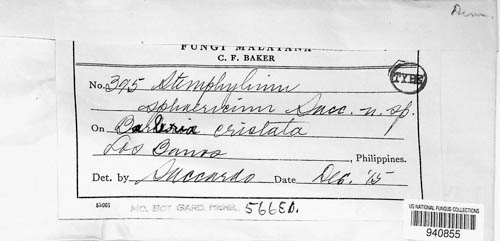 Dem.
FUNGI MALAYANA
C. F. BAKER
TYPE
No. 395 Stemphylium
sphaericum Sacc. n. sp.
On Barleria cristata
Los Banos, Philippines.
Det. by Saccardo Date Dec. '15
MO. BOT GARD. HERB. 566ED.
US NATIONAL FUNGUS COLLECTIONS
940855